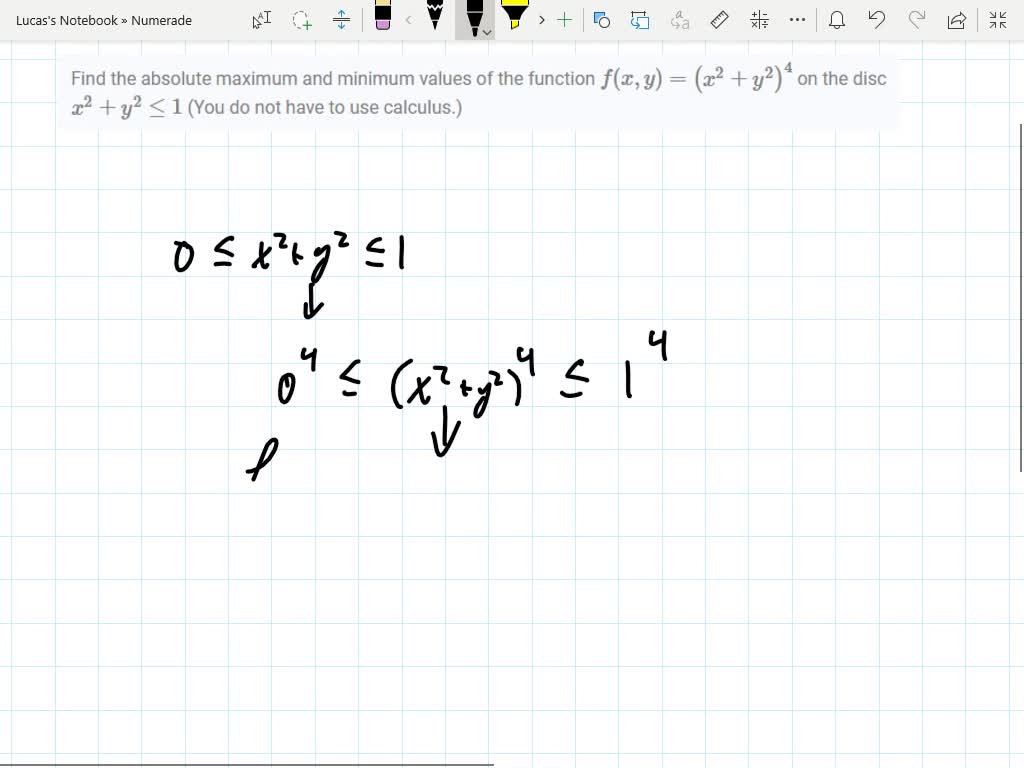 Lucas's Notebook » Numerade
Find the absolute maximum and minimum values of the function f(x, y) = (x² + y²)⁴ on the disc
x² + y² ≤ 1 (You do not have to use calculus.)
0 ≤ x² + y² ≤ 1
↓
0⁴ ≤ (x² + y²)⁴ ≤ 1⁴
↓